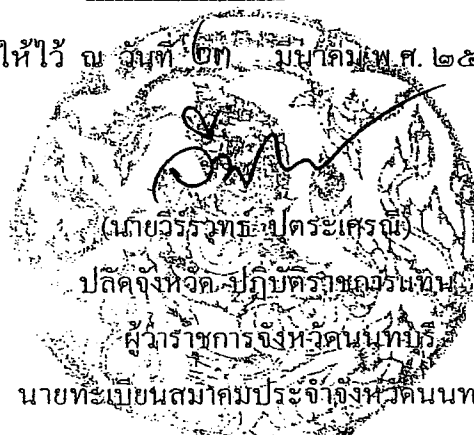 ให้ไว้ ณ วันที่ ๒๓ มีนาคม พ.ศ. ๒๕
(นายวีรวุทธ์ ปุตระเศรณี)
ปลัดจังหวัด ปฏิบัติราชการแทน
ผู้ว่าราชการจังหวัดนนทบุรี
นายทะเบียนสมาคมประจำจังหวัดนนท